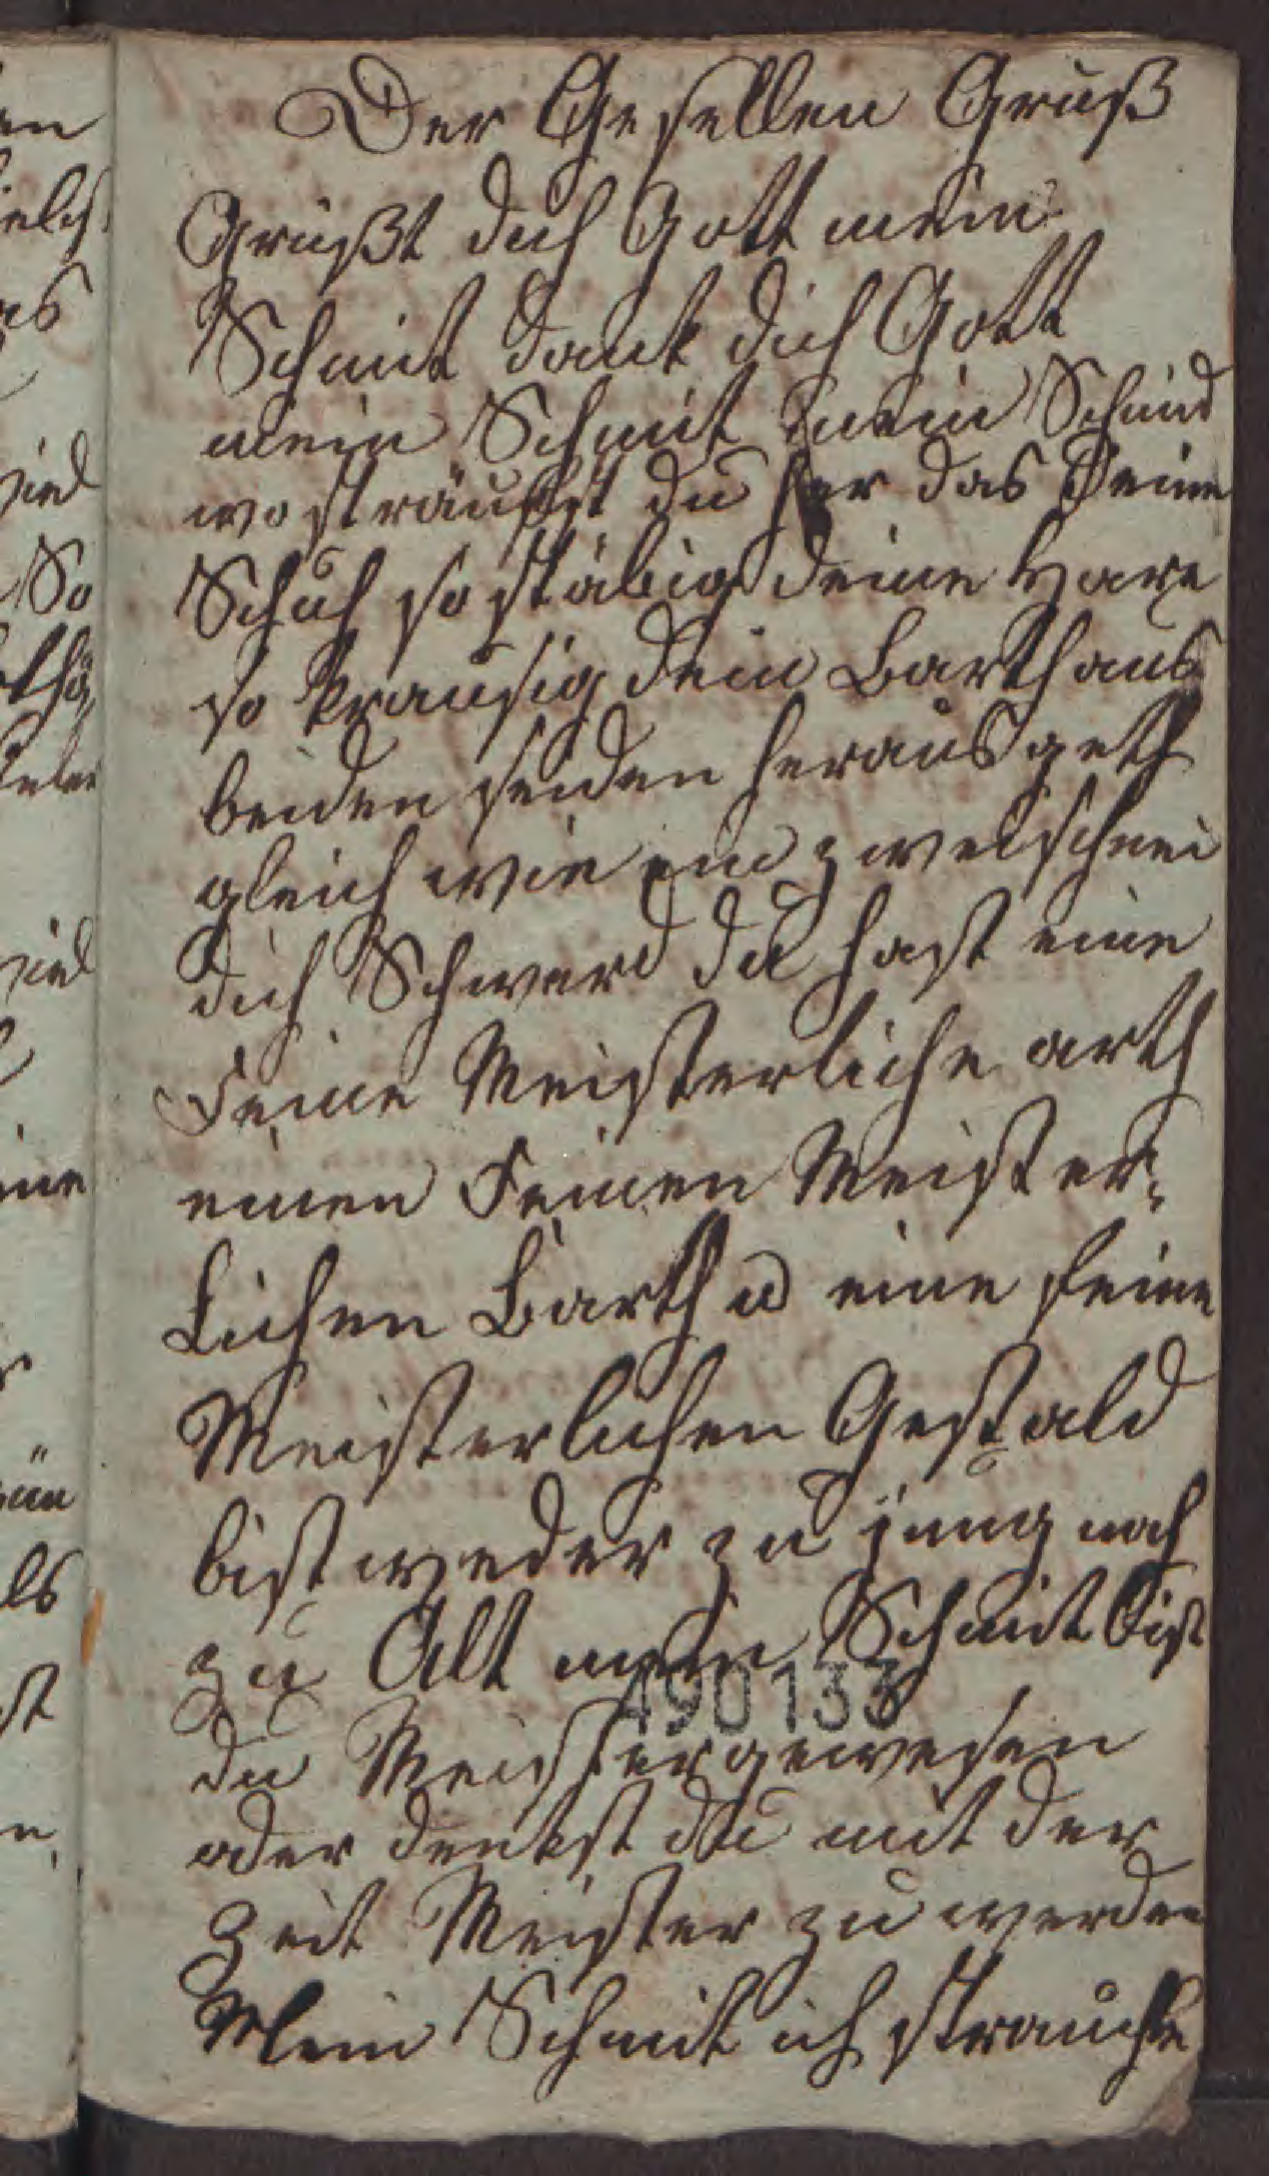 Der Gesellen Gruß
Grüßt dich Gott mein
Schmit dank dich Gott
mein Schmit mein Schmid
wo sträuchst du her das Deine
Schuh so stäbig deine Hare
so krausig dein Barth aus
beiden seiden heraus geth
gleich wie ein zweischnei
dich Schwerd du hast eine
Feine Meisterliche arth
einen Feinen Meister-
Lichen Barth u eine feine
Meisterlichen Gestald
bist weder zu jung noch
zu Alt mein Schmit bist
490133
du Meister gewesen
oder denkst du mit der
Zeit Meister zu werden
Mein Schmit ich strauche